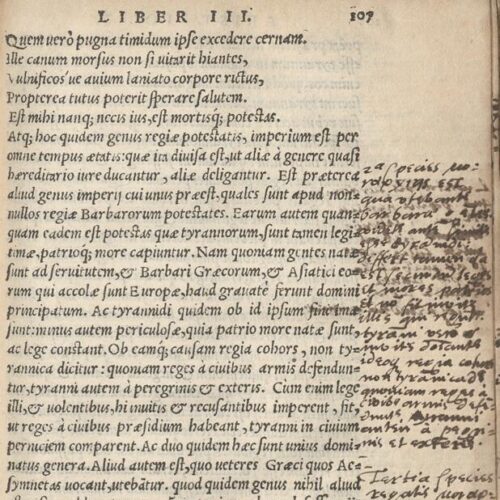 LIBER III. 107
Quem uerò pugna timidum ipse excedere cernam.
Ille canum morsus non si uitarit hiantes,
Vulnificos ue auium laniato corpore rictus,
Propterea tutus poterit sperare salutem.
Est mihi nanq; necis ius, est mortisq; potestas.
Atq; hoc quidem genus regiæ potestatis, imperium est per
omne tempus ætatis: quæ ita diuisa est, ut aliæ à genere quasi
hæreditario iure ducantur, aliæ deligantur. Est præterea
aliud genus imperij cui unus præest. quales sunt apud non-
nullos regiæ Barbarorum potestates. Earum autem quan-
quam eadem est potestas quæ tyrannorum, sunt tamen legi
timæ, patrioq; more capiuntur. Nam quoniam gentes natæ
sunt ad seruitutem, & Barbari Græcorum, & Asiatici eo-
rum qui accolæ sunt Europæ, haud grauate ferunt domini
principatum. Ac tyrannidi quidem ob id ipsum finitimæ
sunt: minus autem periculosæ, quia patrio more natæ sunt,
ac lege constant. Ob eamq; causam regia cohors, non ty-
rannica dicitur: quoniam reges à ciuibus armis defendun-
tur, tyranni autem à peregrinis & exteris. Cum enim lege
illi, & uolentibus, hi inuitis & recusantibus imperent, fit,
ut reges à ciuibus præsidium habeant, tyranni in ciuium
perniciem comparent. Ac duo quidem hæc sunt unius domi-
natus genera. Aliud autem est, quo ueteres Græci quos Ae-
symnetas uocant, utebãtur. quod quidem genus nihil aliud
species
est
barbara
differt tamen
et more patrio
tyranni vero
ideoq regia cohors
non tyrannica dr
quoniam reges à
ciuibus armis
tyranni
autem à
nis et exteris.
Tertia species